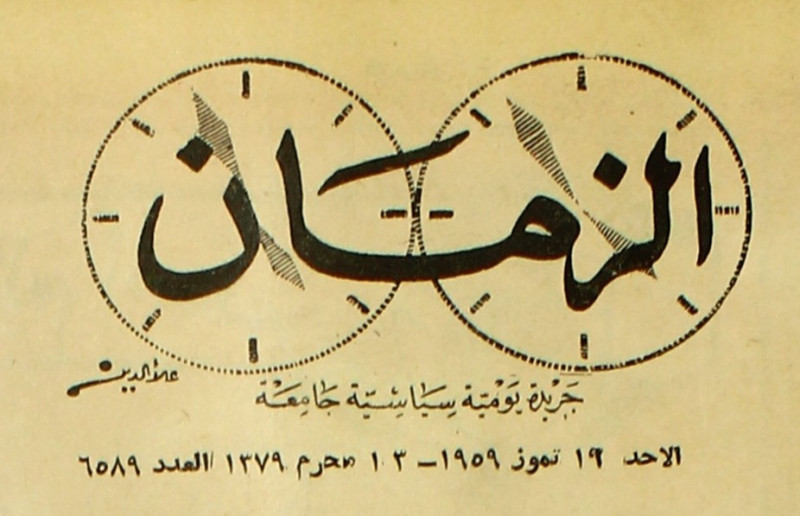 الزمان
علاء الدين
جريدة يومية سياسية جامعة
الاحد ١٩ تموز ١٩٥٩ – ١٣ محرم ١٣٧٩ العدد ٦٥٨٩